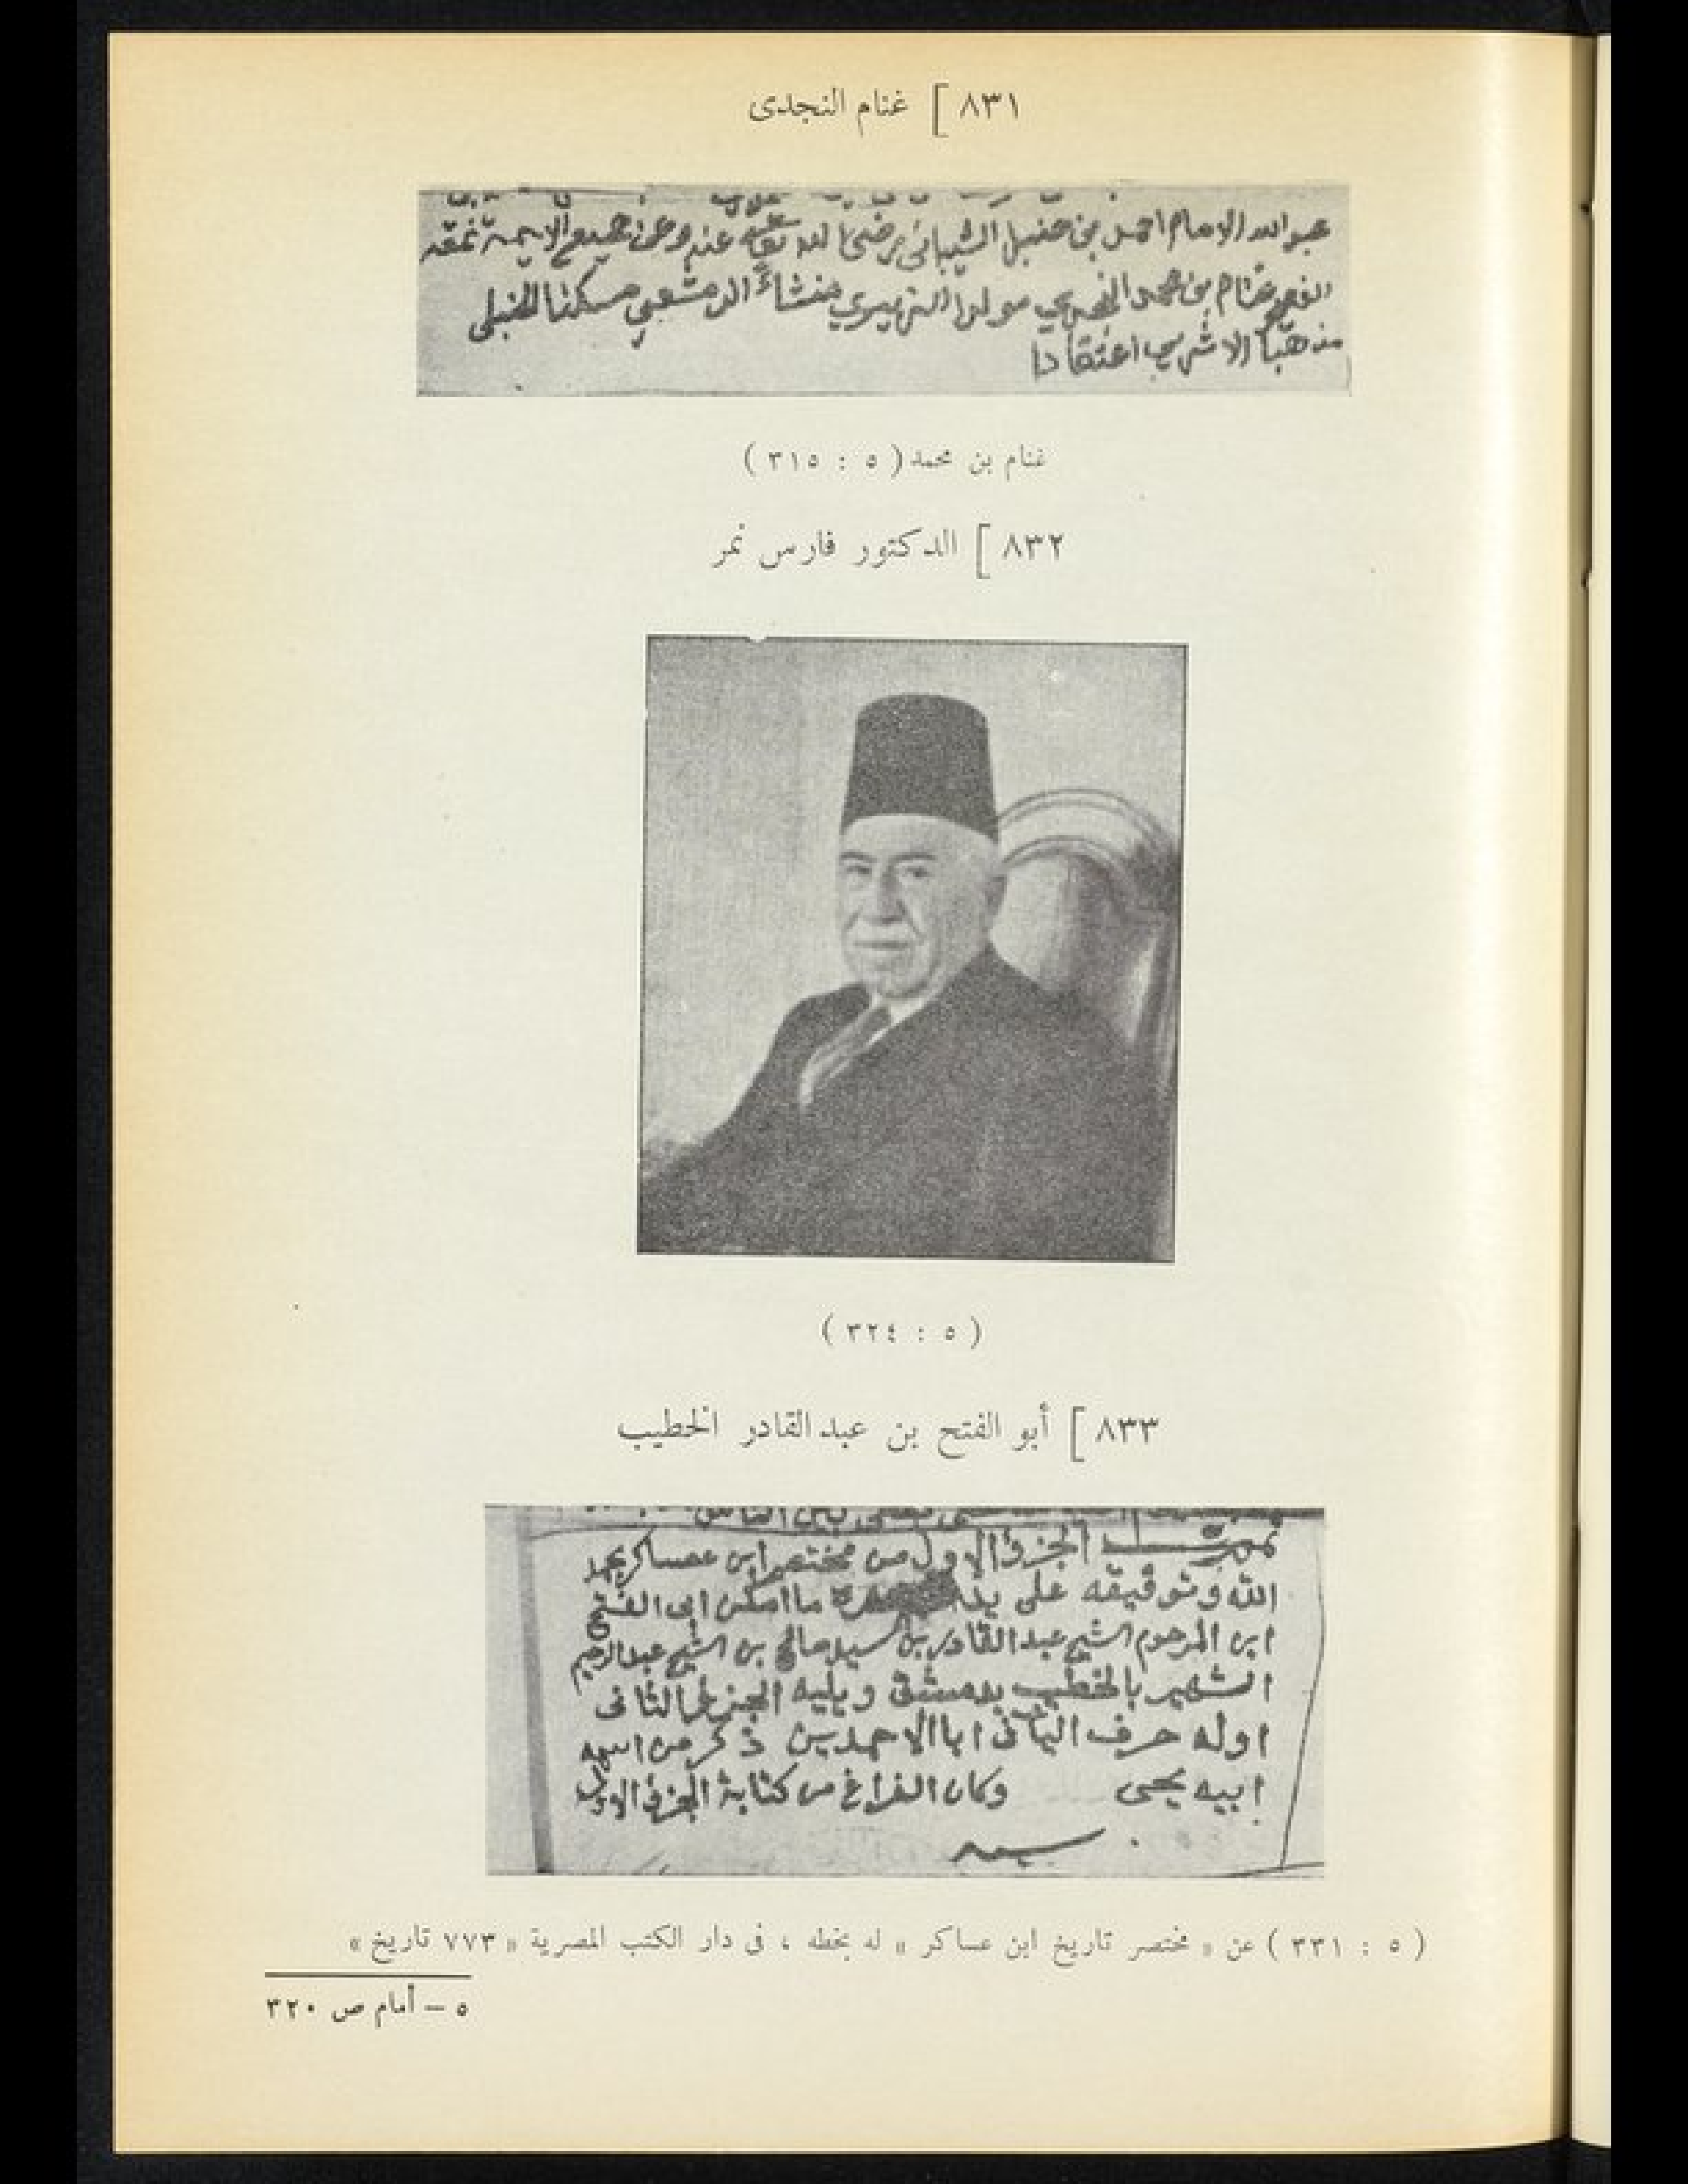 ٨٣١ [ غنام النجدى
عبد الله الامام احمد بن حنبل الشيبانى رضى الله تعالى عنه وعن جميع الايمة نمقه
الفقير غنام بن محمد النجدي مولدا الزبيري منشاءً الدمشقي مسكنا الحنبلى
مذهبًا الاثري اعتقادا
غنام بن محمد ( ٥ : ٣١٥ )
٨٣٢ [ الدكتور فارس نمر
( ٥ : ٣٢٤ )
٨٣٣ [ أبو الفتح بن عبد القادر الخطيب
الجزؤ الاول من مختصر ابن عساكر بحمد
الله وتوفيقه على يد ما امكن ابى الفتح
ابن المرحوم الشيخ عبد القادر بن السيد صالح بن الشيخ عبد الرحيم
الشهير بالخطيب بدمشق ويليه الجزء الثانى
اوله حرف اليا فى ابا الاحمدين ذكر من اسمه
ابيه يحيى وكان الفراغ من كتابة الجزؤ الاول
( ٥ : ٣٣١ ) عن « مختصر تاريخ ابن عساكر » له بخطه ، فى دار الكتب المصرية « ٧٧٣ تاريخ »
٥ – أمام ص ٣٢٠